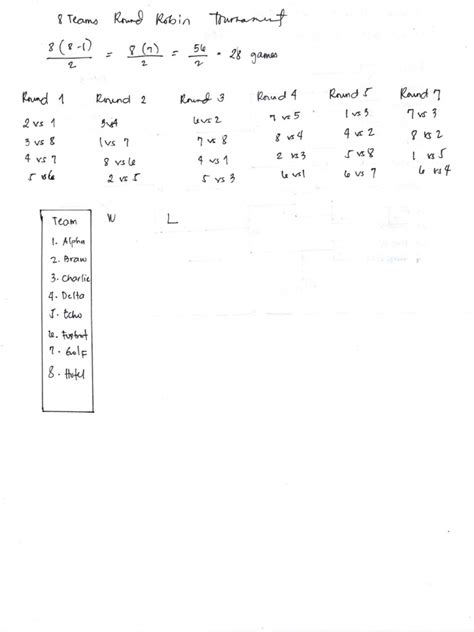 8 Teams Round Robin Tournament
8(8-1)/2 = 8(7)/2 = 56/2 = 28 games
Round 1 Round 2 Round 3 Round 4 Round 5 Round 7
2 vs 1 3v4 6vs2 7 vs 5 1 vs 3 7 vs 3
3 vs 8 1vs 7 7 vs 8 8 vs 4 4 vs 2 8 vs 2
4 vs 7 8 vs 6 4 vs 1 2 vs 3 5 vs 8 1 vs 5
5 vs6 2 vs 5 5 vs 3 6 vs1 6 vs 7 6 vs 4
Team W L
1. Alpha
2. Bravo
3. Charlie
4. Delta
5. Echo
6. Foxtrot
7. Golf
8. Hotel